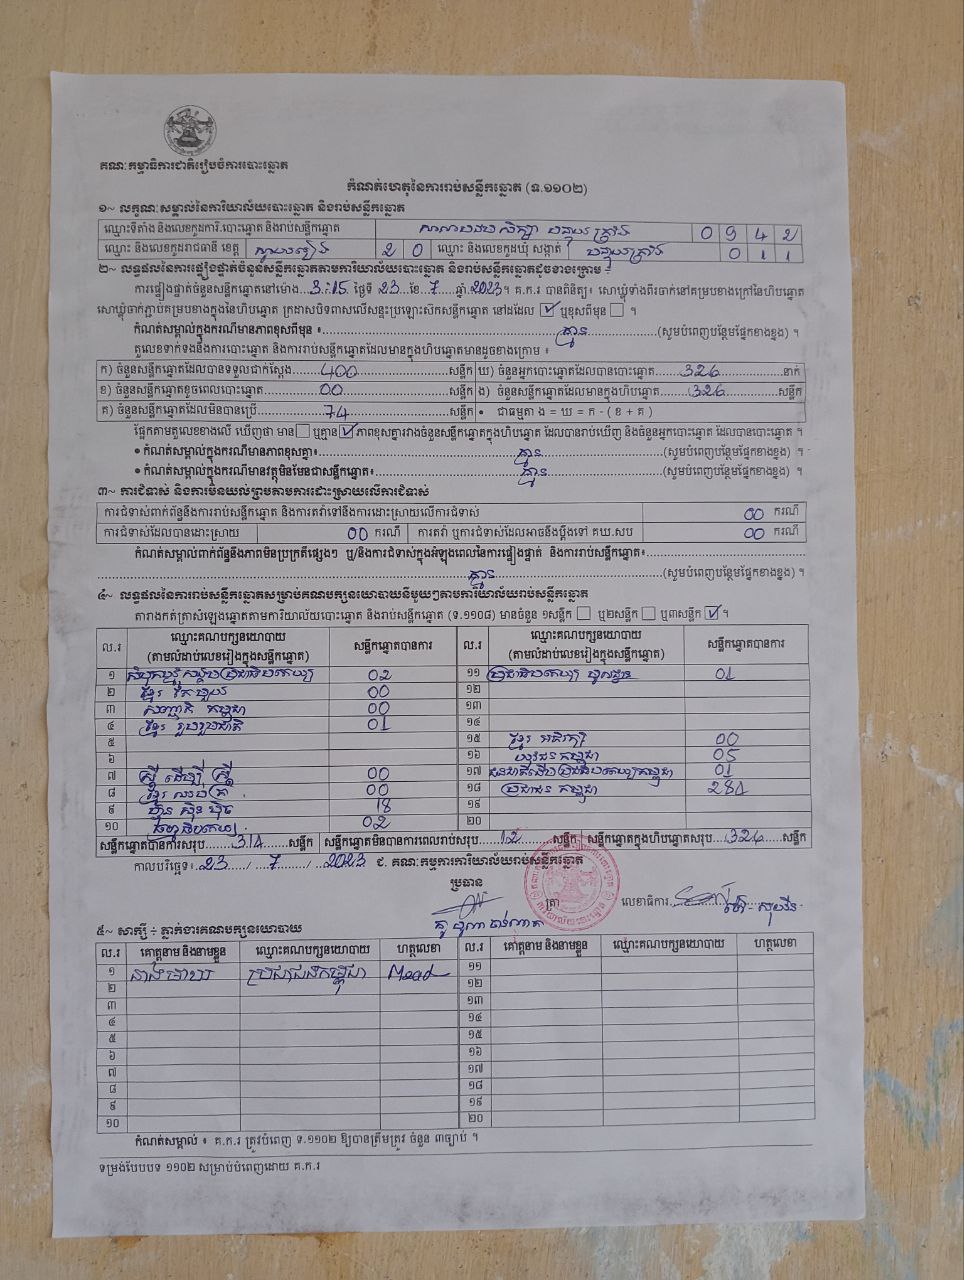 គណៈកម្មាធិការជាតិរៀបចំការបោះឆ្នោត
កំណត់ហេតុនៃការរាប់សន្លឹកឆ្នោត (ទ.១១០២)
១~ លក្ខណៈសម្គាល់នៃការិយាល័យបោះឆ្នោត និងរាប់សន្លឹកឆ្នោត
ឈ្មោះទីតាំង និងលេខកូដការិ.បោះឆ្នោត និងរាប់សន្លឹកឆ្នោត 0942
ឈ្មោះ និងលេខកូដរាជធានី ខេត្ត ស្វាយរៀង 20 ឈ្មោះ និងលេខកូដឃុំ សង្កាត់ 011
២~ លទ្ធផលនៃការផ្ទៀងផ្ទាត់ចំនួនសន្លឹកឆ្នោតតាមការិយាល័យបោះឆ្នោត និងរាប់សន្លឹកឆ្នោតដូចខាងក្រោម ÷
ការផ្ទៀងផ្ទាត់ចំនួនសន្លឹកឆ្នោតនៅម៉ោង 3:15 ថ្ងៃទី 23 ខែ 7 ឆ្នាំ 2023។ គ.ក.រ បានពិនិត្យ៖ សោឃ្លុំទាំងពីរចាក់នៅគម្របខាងក្រៅនៃហិបឆ្នោត
សោឃ្លុំចាក់ភ្ជាប់គម្របខាងក្នុងនៃហិបឆ្នោត ក្រដាសបិទពាសលើសន្ទះប្រឡោះស៊កសន្លឹកឆ្នោត នៅដដែល ☑ ឬខុសពីមុន ☐ ។
កំណត់សម្គាល់ក្នុងករណីមានភាពខុសពីមុន ៖ គ្មាន (សូមបំពេញបន្ថែមផ្នែកខាងខ្នង) ។
តួលេខទាក់ទងនឹងការបោះឆ្នោត និងការរាប់សន្លឹកឆ្នោតដែលមានក្នុងហិបឆ្នោតមានដូចខាងក្រោម ៖
ក) ចំនួនសន្លឹកឆ្នោតដែលបានទទួលជាក់ស្តែង 400 សន្លឹក ឃ) ចំនួនអ្នកបោះឆ្នោតដែលបានបោះឆ្នោត 326 នាក់
ខ) ចំនួនសន្លឹកឆ្នោតខូចពេលបោះឆ្នោត 00 សន្លឹក ង) ចំនួនសន្លឹកឆ្នោតដែលមានក្នុងហិបឆ្នោត 326 សន្លឹក
គ) ចំនួនសន្លឹកឆ្នោតដែលមិនបានប្រើ 74 សន្លឹក • ជាធម្មតា ង = ឃ = ក - ( ខ + គ )
ផ្អែកតាមតួលេខខាងលើ ឃើញថា មាន ☐ ឬគ្មាន ☑ ភាពខុសគ្នារវាងចំនួនសន្លឹកឆ្នោតក្នុងហិបឆ្នោត ដែលបានរាប់ឃើញ និងចំនួនអ្នកបោះឆ្នោត ដែលបានបោះឆ្នោត ។
• កំណត់សម្គាល់ក្នុងករណីមានភាពខុសគ្នា៖ គ្មាន (សូមបំពេញបន្ថែមផ្នែកខាងខ្នង) ។
• កំណត់សម្គាល់ក្នុងករណីមានវត្ថុមិនមែនជាសន្លឹកឆ្នោត៖ គ្មាន (សូមបំពេញបន្ថែមផ្នែកខាងខ្នង) ។
៣~ ការជំទាស់ និងការមិនយល់ព្រមតាមការដោះស្រាយលើការជំទាស់
ការជំទាស់ពាក់ព័ន្ធនឹងការរាប់សន្លឹកឆ្នោត និងការតវ៉ាទៅនឹងការដោះស្រាយលើការជំទាស់ 00 ករណី
ការជំទាស់ដែលបានដោះស្រាយ 00 ករណី ការតវ៉ា ឬការជំទាស់ដែលអាចនឹងប្តឹងទៅ គឃ.សប 00 ករណី
កំណត់សម្គាល់ពាក់ព័ន្ធនឹងភាពមិនប្រក្រតីផ្សេងៗ ឬ/និងការជំទាស់ក្នុងអំឡុងពេលនៃការផ្ទៀងផ្ទាត់ និងការរាប់សន្លឹកឆ្នោត៖
គ្មាន (សូមបំពេញបន្ថែមផ្នែកខាងខ្នង) ។
៤~ លទ្ធផលនៃការរាប់សន្លឹកឆ្នោតសម្រាប់គណបក្សនយោបាយនីមួយៗតាមការិយាល័យរាប់សន្លឹកឆ្នោត
តារាងកត់ត្រាសំឡេងឆ្នោតតាមការិយាល័យបោះឆ្នោត និងរាប់សន្លឹកឆ្នោត (ទ.១១០៨) មានចំនួន ១សន្លឹក ☐ ឬ២សន្លឹក ☐ ឬ៣សន្លឹក ☑ ។
ល.រ ឈ្មោះគណបក្សនយោបាយ (តាមលំដាប់លេខរៀងក្នុងសន្លឹកឆ្នោត) សន្លឹកឆ្នោតបានការ ល.រ ឈ្មោះគណបក្សនយោបាយ (តាមលំដាប់លេខរៀងក្នុងសន្លឹកឆ្នោត) សន្លឹកឆ្នោតបានការ
១ សំបុកឃ្មុំសង្គមប្រជាធិបតេយ្យ 02 ១១ ប្រជាធិបតេយ្យ មូលដ្ឋាន 01
២ ខ្មែរ តែមួយ 00 ១២
៣ សញ្ជាតិ កម្ពុជា 00 ១៣
៤ ខ្មែរ រួបរួមជាតិ 01 ១៤
៥ ១៥ ខ្មែរ អភិរក្ស 00
៦ ១៦ យុវជន កម្ពុជា 05
៧ ស្ត្រី ដើម្បី ស្ត្រី 00 ១៧ ជនជាតិដើមប្រជាធិបតេយ្យកម្ពុជា 01
៨ 00 ១៨ ប្រជាជន កម្ពុជា 284
៩ ហ្វ៊ុន ស៊ិន ប៉ិច 18 ១៩
១០ 02 ២០
សន្លឹកឆ្នោតបានការសរុប 314 សន្លឹក សន្លឹកឆ្នោតមិនបានការពេលរាប់សរុប 12 សន្លឹក សន្លឹកឆ្នោតក្នុងហិបឆ្នោតសរុប 326 សន្លឹក
កាលបរិច្ឆេទ៖ 23 / 7 / 2023 ជ. គណៈកម្មការការិយាល័យរាប់សន្លឹកឆ្នោត
ប្រធាន
ត្រា
លេខាធិការ
៥~ សាក្សី ÷ ភ្នាក់ងារគណបក្សនយោបាយ
ល.រ គោត្តនាម និងនាមខ្លួន ឈ្មោះគណបក្សនយោបាយ ហត្ថលេខា ល.រ គោត្តនាម និងនាមខ្លួន ឈ្មោះគណបក្សនយោបាយ ហត្ថលេខា
១ ប្រជាជនកម្ពុជា ១១
២ ១២
៣ ១៣
៤ ១៤
៥ ១៥
៦ ១៦
៧ ១៧
៨ ១៨
៩ ១៩
១០ ២០
កំណត់សម្គាល់ ៖ គ.ក.រ ត្រូវបំពេញ ទ.១១០២ ឱ្យបានត្រឹមត្រូវ ចំនួន ៣ច្បាប់ ។
ទម្រង់បែបបទ ១១០២ សម្រាប់បំពេញដោយ គ.ក.រ